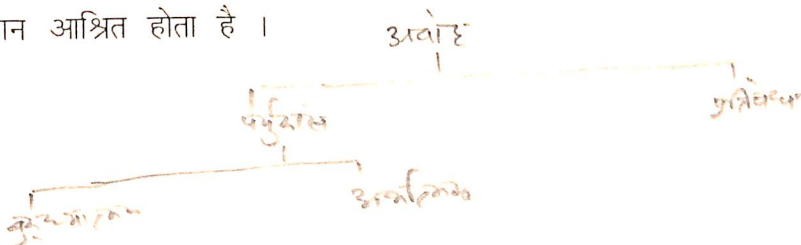 ान आश्रित होता है ।
अपोह
पर्युदास
बुद्ध्यात्मक
अर्थात्मक